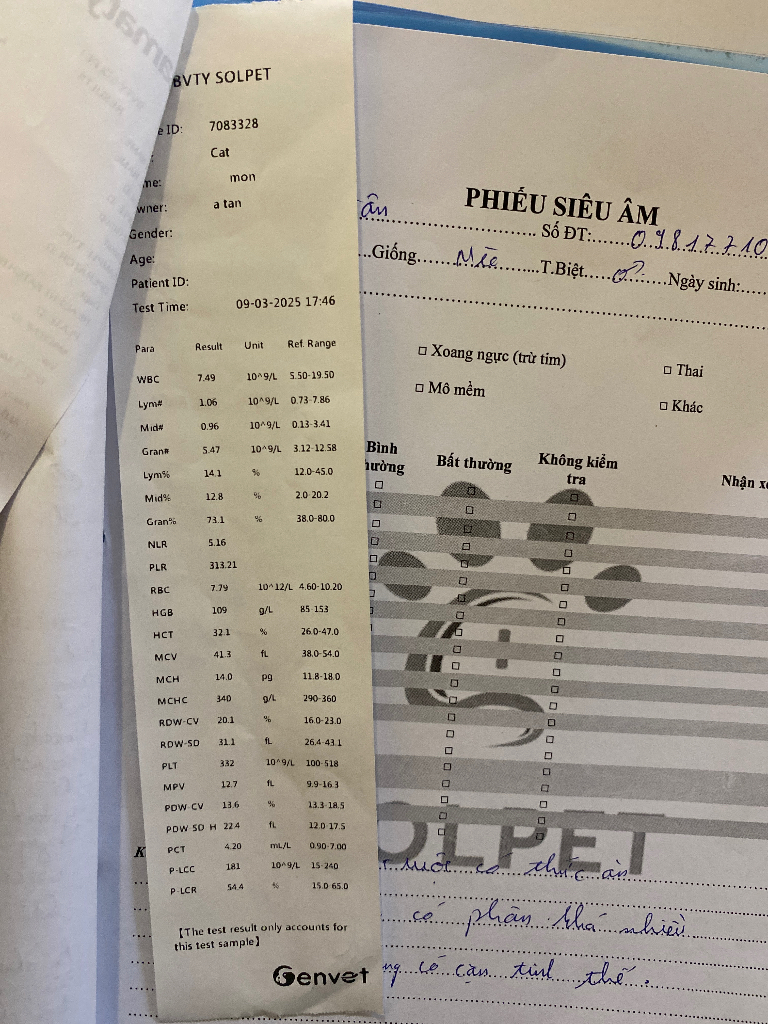 BVTY SOLPET
e ID: 7083328
: Cat
me: mon
wner: a tan
Gender:
Age:
Patient ID:
Test Time: 09-03-2025 17:46
Para Result Unit Ref. Range
WBC 7.49 10^9/L 5.50-19.50
Lym# 1.06 10^9/L 0.73-7.86
Mid# 0.96 10^9/L 0.13-3.41
Gran# 5.47 10^9/L 3.12-12.58
Lym% 14.1 % 12.0-45.0
Mid% 12.8 % 2.0-20.2
Gran% 73.1 % 38.0-80.0
NLR 5.16
PLR 313.21
RBC 7.79 10^12/L 4.60-10.20
HGB 109 g/L 85-153
HCT 32.1 % 26.0-47.0
MCV 41.3 fL 38.0-54.0
MCH 14.0 pg 11.8-18.0
MCHC 340 g/L 290-360
RDW-CV 20.1 % 16.0-23.0
RDW-SD 31.1 fL 26.4-43.1
PLT 332 10^9/L 100-518
MPV 12.7 fL 9.9-16.3
PDW-CV 13.6 % 13.3-18.5
PDW-SD H 22.4 fL 12.0-17.5
PCT 4.20 mL/L 0.90-7.00
P-LCC 181 10^9/L 15-240
P-LCR 54.4 % 15.0-65.0
【The test result only accounts for
this test sample】
Genvet
PHIẾU SIÊU ÂM
ân Số ĐT: 09817710
Giống Mèo T.Biệt ♂ Ngày sinh:
□ Xoang ngực (trừ tim) □ Thai
□ Mô mềm □ Khác
Bình
hường Bất thường Không kiểm
tra Nhận xé
SOLPET
K
ruột có thức ăn
có phân khá nhiều
ng có cặn tinh thể.